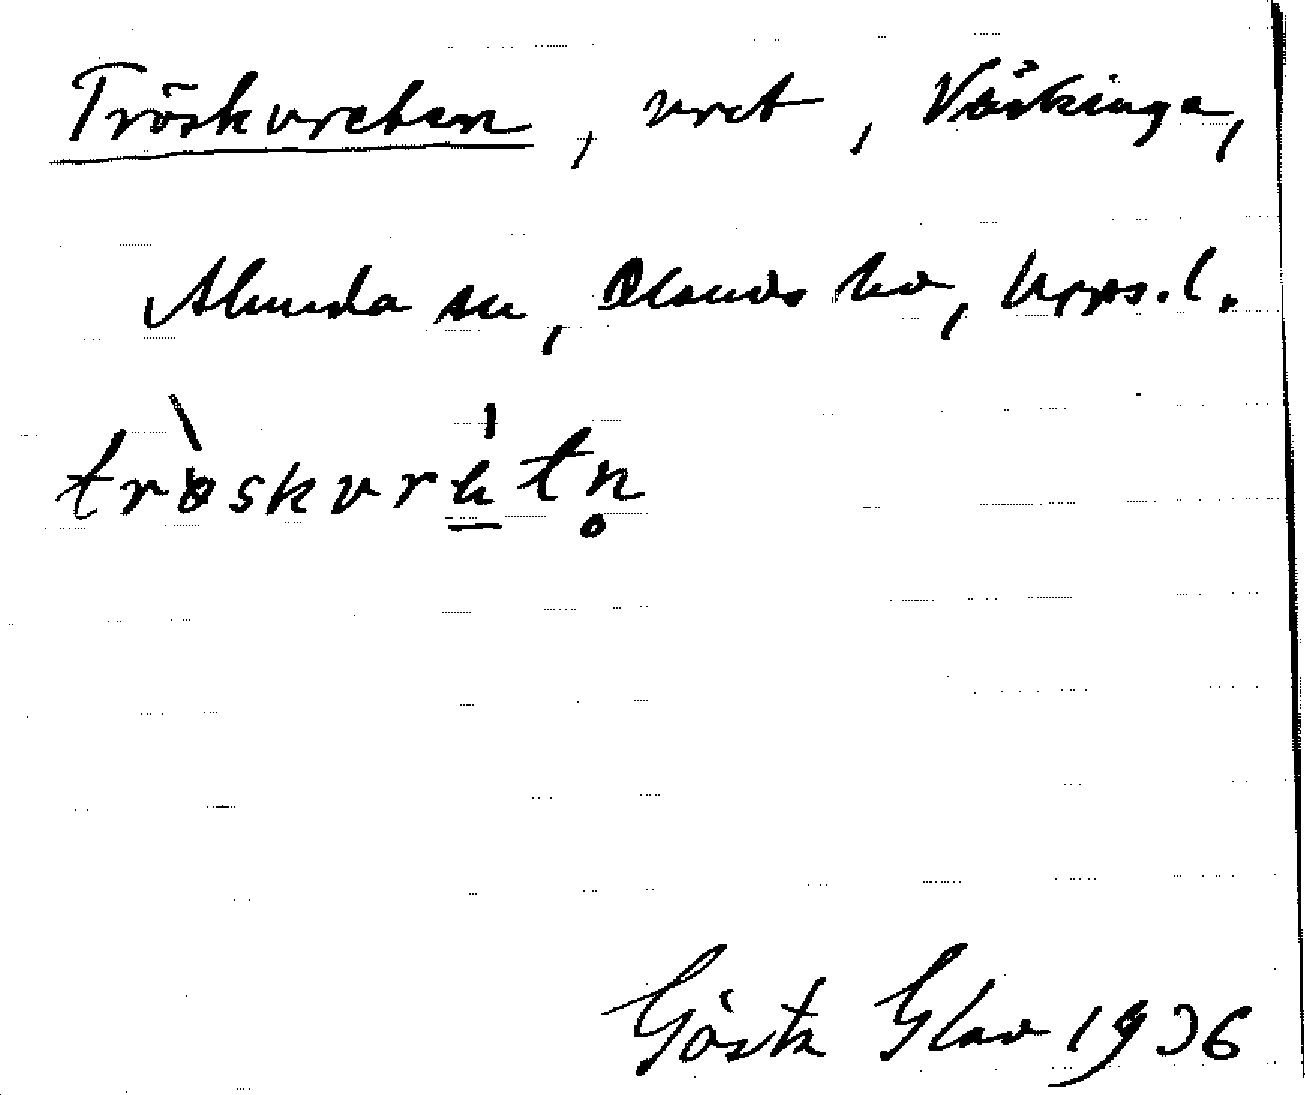 Tröskvreten, vret, Våskinge,
Alunda sn, Olands hd, Upps. l.
tròskvrétn̥
Gösta Glav 1936